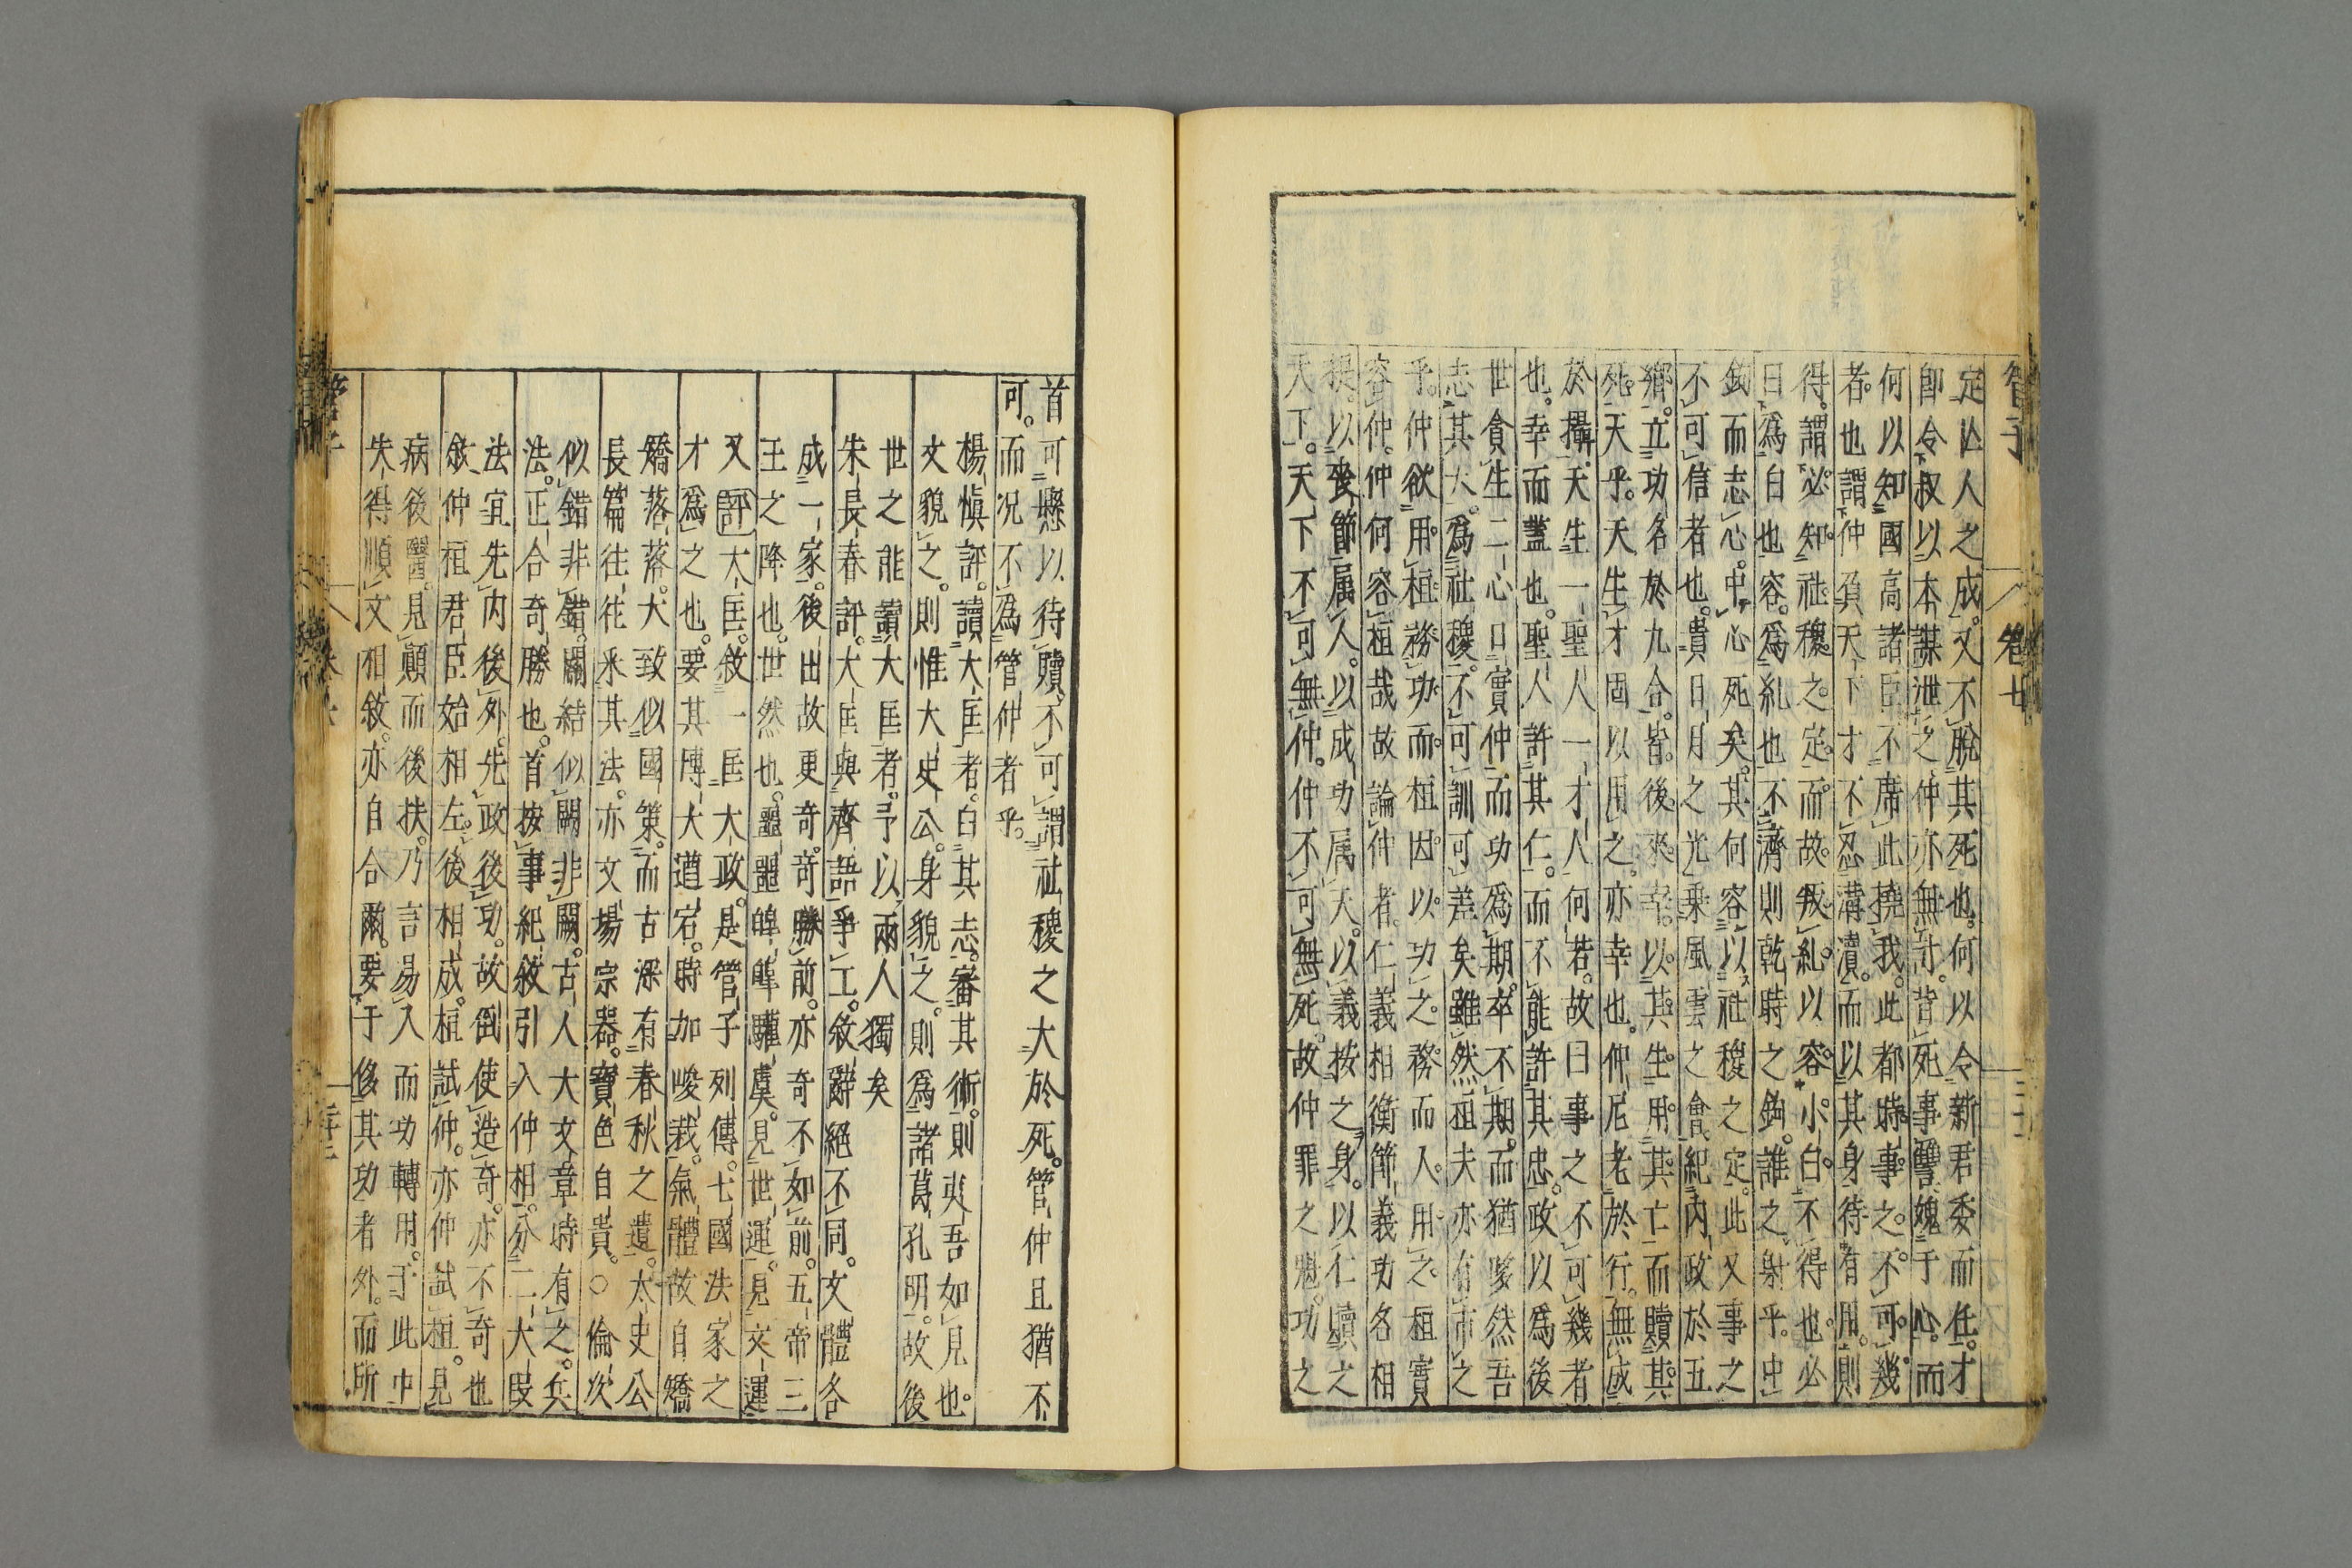 管子 卷七
定亾人之成又不脫其死也何以令新君委而任才
卽令叔以本謀泄之仲亦無討背死事讐媿于心而
何以知國高諸臣不席此撓我此都時事之不可幾
者也謂仲負天下才不忍溝瀆而以其身待有用則
得謂必知社稷之定而故叛糺以容小白不得也必
曰爲白也容爲糺也不濟則乾時之鉤誰之射乎中
鉤而志心中心死矣其何容以社稷之定此又事之
不可信者也貴日月之光乘風雲之會紀內政於五
鄉立功名於九合皆後來幸以其生用其亡而贖其
死天乎天生才固以用之亦幸也仲尼老於行無成
於攝天生一聖人一才人何若故曰事之不可幾者
也幸而蓋也聖人許其仁而不能許其忠政以爲後
世貪生二心口實仲而功爲期卒不期而猶娑然吾
志其大爲社稷不可訓可羞矣雖然祖夫亦有市之
乎仲欲用桓務功而桓因以功之務而入用之桓實
容仲仲何容桓哉故論仲者仁義相衡節義功名相
損以丧節属人以成功属天以義按之身以仁贖之
天下天下不可無仲仲不可無死故仲罪之魁功之
首可懸以待贖不可謂社稷之大於死管仲且猶不
可而况不爲管仲者乎
楊愼評讀大匡者白其志審其術則夷吾如見也
文貌之則惟大史公身貌之則爲諸葛孔明故後
世之能讀大匡者予以兩人獨矣
朱長春評大匡與齊語爭工敘辭絕不同文體各
成一家後出故更奇奇勝前亦奇不如前五帝三
王之降也世然也噩噩皥皥驩虞見世運見文運
又評大匡敘一匡大政是管子列傳七國法家之
才爲之也要其博大遒宕時加峻栽氣體故自矯
矯落落大致似國策而古深有春秋之遺太史公
長篇往往釆其法亦文場宗器寶色自貴○倫次
似錯非錯關結似關非關古人大文章時有之兵
法正合奇勝也首按事紀敘引入仲相分二大段
法宜先內後外先政後功故倒使造奇亦不奇也
敘仲桓君臣始相左後相成桓試仲亦仲試桓見
病後醫見顚而後扶乃言易入而功轉用于此中
失得順文相敘亦自合爾要于侈其功者外而所
管子